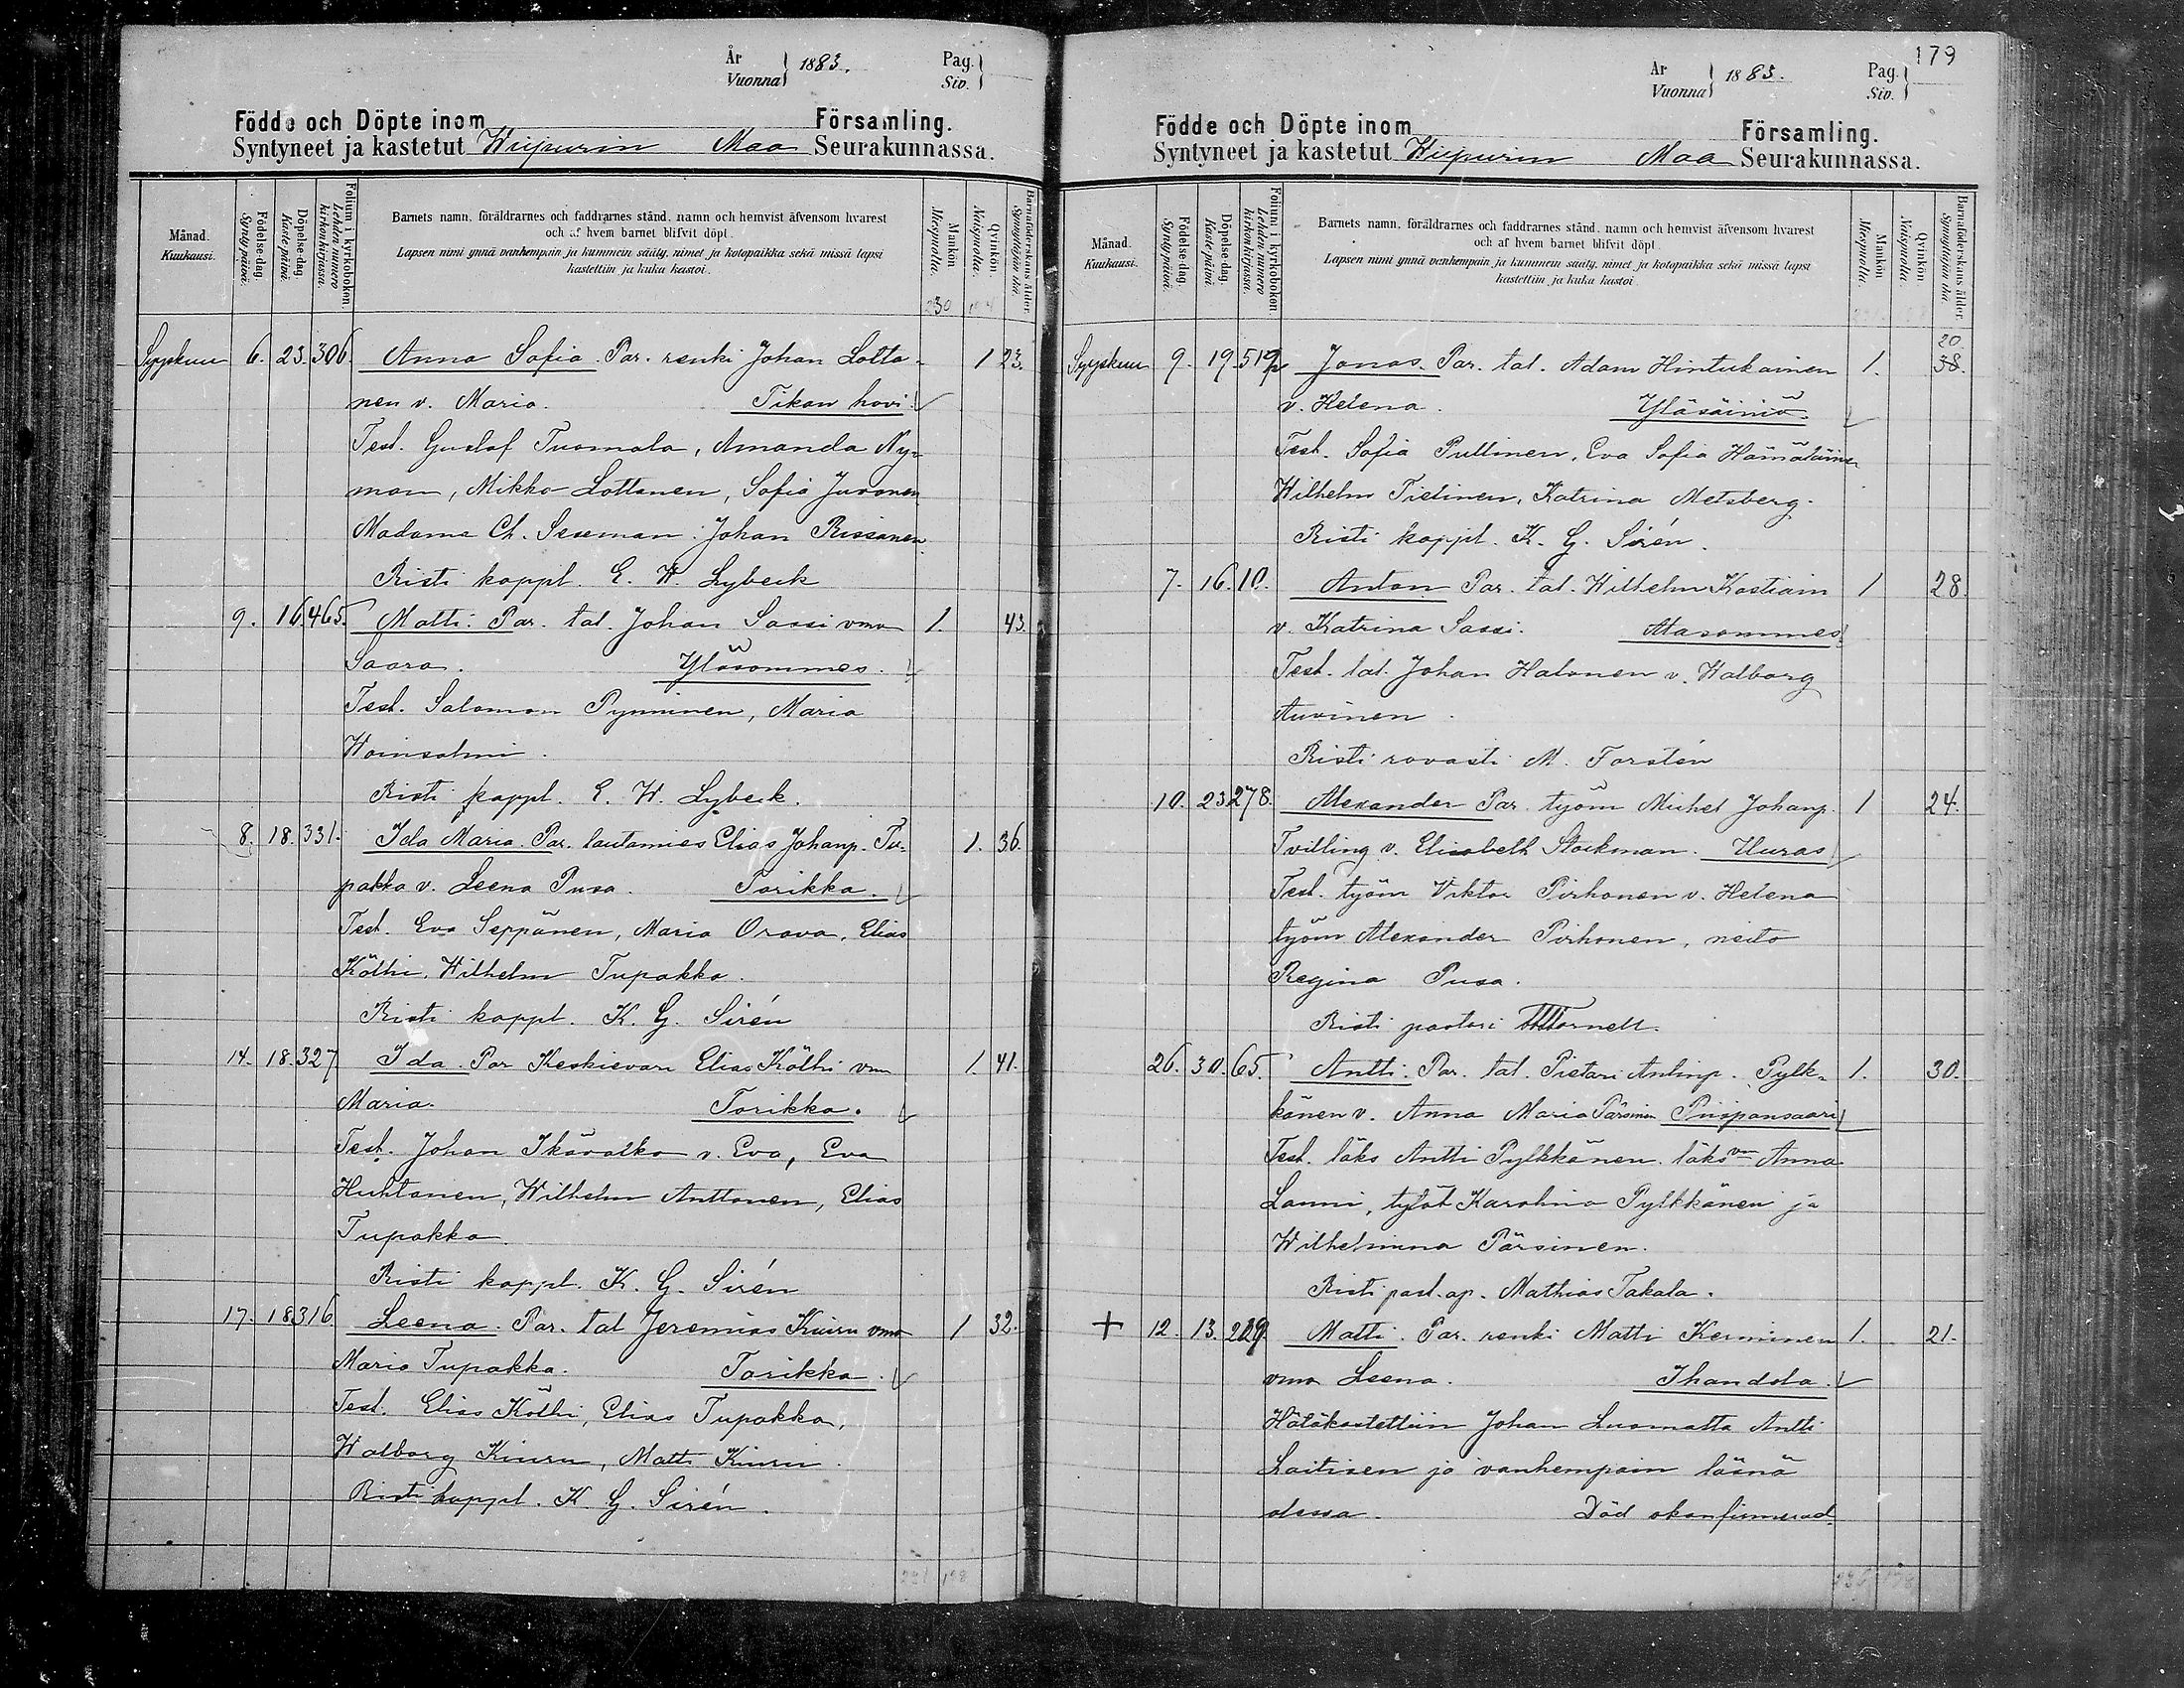 År
Vuonna } 1883.
Pag.
Siv.
Födde och Döpte inom Församling.
Syntyneet ja kastetut Wiipurin Maa Seurakunnassa.
Månad.
Kuukausi.
Födelse-dag.
Syntypäivä.
Döpelse-dag.
Kastepäivä.
Folium i kyrkobokon
Lehden numero
kirkonkirjassa.
Barnets namn, föräldrarnes och faddrarnes stånd, namn och hemvist äfvensom hvarest
och af hvem barnet blifvit döpt.
Lapsen nimi ynnä vanhempain ja kummein sääty, nimet ja kotopaikka sekä missä lapsi
kastettiin ja kuka kastoi.
Mankön
Miespuolta.
Qvinkön.
Naispuolta.
Barnaföderskans ålder.
Synnyttäjän ikä.
230
Syyskuu 6. 23. 306. Anna Sofia. Par. renki Johan Lotta- 1 23.
nen v. Maria. Tikan hovi.
Test. Gustaf Tuomala, Amanda Ny-
man, Mikko Lottanen, Sofia Juvonen
Madame Ch. Seseman. Johan Rissanen.
Risti kappl. E. W. Lybeck
9. 16. 465. Matti. Par. tal. Johan Sassi vmo 1. 43.
Saara. Yläsommes.
Test. Salomon Pynninen, Maria
Woinsalmi.
Risti kappl. E. W. Lybeck.
8. 18. 331. Ida Maria. Par. lautamies Elias Johanp. Tu- 1. 36.
pakka v. Leena Pusa. Torikka.
Test. Eva Seppänen, Maria Orava, Elias
Kölhi, Wilhelm Tupakka.
Risti kappl. K. G. Sirén
14. 18. 327 Ida. Par Keskievari Elias Kölhi vm 1 41.
Maria. Torikka.
Test. Johan Ikävalko v. Eva, Eva
Huhtanen, Wilhelm Anttonen, Elias
Tupakka.
Risti kappl. K. G. Sirén
17. 18 316. Leena. Par. tal Jeremias Kiuru vmo 1 32.
Maria Tupakka. Torikka.
Test. Elias Kölhi, Elias Tupakka,
Walborg Kiuru, Matti Kiuru.
Risti kappl. K. G. Sirén.
179
År
Vuonna } 1883.
Pag.
Siv.
Födde och Döpte inom Församling.
Syntyneet ja kastetut Wiipurin Maa Seurakunnassa.
Månad.
Kuukausi.
Födelse-dag.
Syntypäivä.
Döpelse-dag.
Kastepäivä.
Folium i kyrkobokon
Lehden numero
kirkonkirjassa.
Barnets namn, föräldrarnes och faddrarnes stånd, namn och hemvist äfvensom hvarest
och af hvem barnet blifvit döpt.
Lapsen nimi ynnä vanhempain ja kummein sääty, nimet ja kotopaikka sekä missä lapsi
kastettiin ja kuka kastoi.
Mankön
Miespuolta.
Qvinkön
Naispuolta.
Barnaföderskans ålder.
Synnyttäjän ikä.
20.
Syyskuu 9. 19. 519 Jonas. Par. tal. Adam Hintukainen 1. 38.
v. Helena. Yläsäiniö.
Test. Sofia Pullinen, Eva Sofia Hämäläinen
Wilhelm Tielinen, Katrina Metsberg.
Risti kappl. K. G. Sirén.
7. 16. 10. Anton Par. tal. Wilhelm Kostiain 1 28.
v. Katrina Sassi. Alasommes
Test. tal. Johan Halonen v. Walborg
Auvinen.
Risti rovasti M. Forstén
10. 23. 278. Alexander Par. työm Michel Johanp. 1 24.
Tvilling v. Elisabeth Stockman. Uuras
Test. työm Viktor Pirhonen v. Helena
työm Alexander Pirhonen, neito
Regina Pusa.
Risti pastori Tornell.
26. 30. 65. Antti. Par. tal. Pietari Antinp. Pylk- 1. 30.
känen v. Anna Maria Pärsinen Piispansaari
Test. läks Antti Pylkkänen. läks vm Anna
Lanni, tytöt Karolina Pylkkänen ja
Wilhelmina Pärsinen.
Risti past. ap. Mathias Takala.
+ 12. 13. 229. Matti. Par. renki Matti Kerminen 1. 21.
vmo Leena. Ihandola.
Hätäkastettiin Johan Luomatta Antti
Laitisen ja vanhempain läsnä
olessa. Död okonfirmerad.